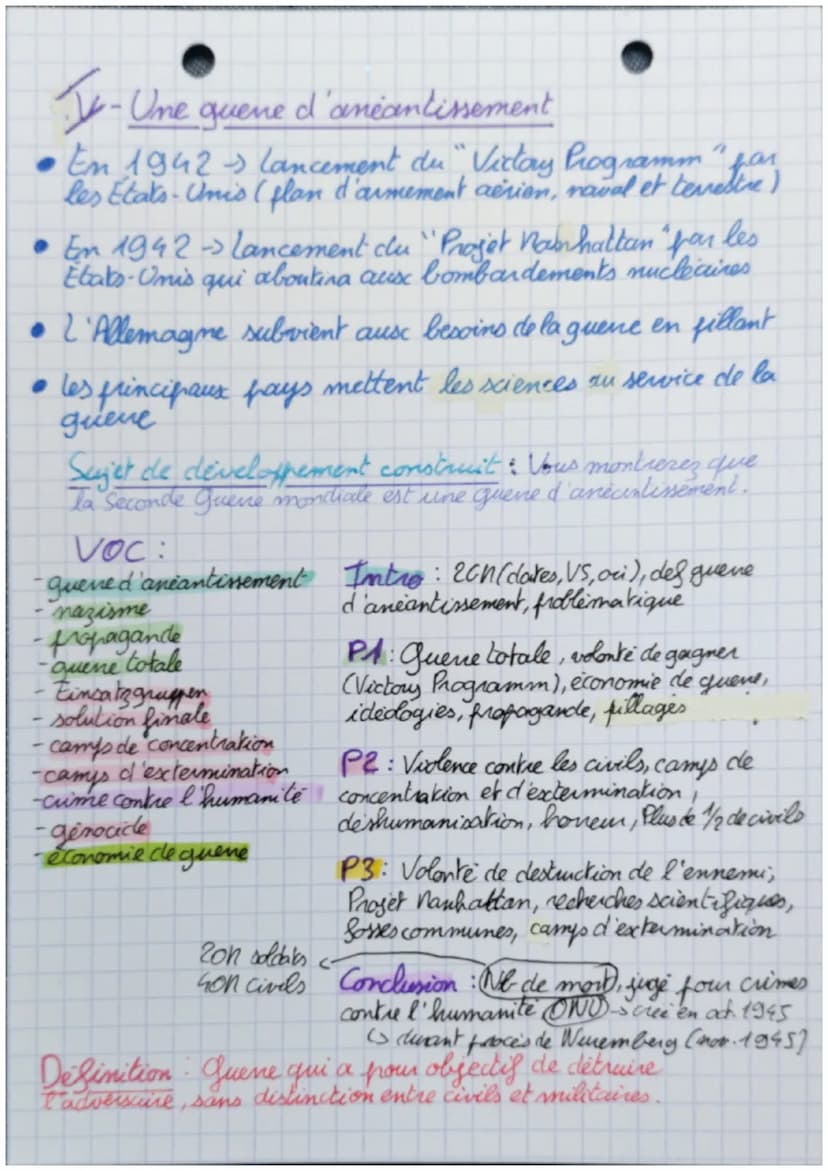 IV - Une guerre d'anéantissement
• En 1942 -> lancement du "Victory Programm" par
les États-Unis (plan d'armement aérien, naval et terrestre)
• En 1942 -> lancement du "Projet Manhattan" par les
États-Unis qui aboutira aux bombardements nucléaires
• L'Allemagne subvient aux besoins de la guerre en pillant
• Les principaux pays mettent les sciences au service de la
guerre
Sujet de développement construit : Vous montrerez que
la Seconde Guerre mondiale est une guerre d'anéantissement.
VOC :
- guerre d'anéantissement
- nazisme
- propagande
- guerre totale
- Einsatzgruppen
- solution finale
- camps de concentration
- camps d'extermination
- crime contre l'humanité
- génocide
- économie de guerre
Intro : 2GM (dates, VS, où), def guerre
d'anéantissement, problématique
P1 : Guerre totale, volonté de gagner
(Victory Programm), économie de guerre,
idéologies, propagande, pillages
P2 : Violence contre les civils, camps de
concentration et d'extermination,
déshumanisation, horreur, Plus de 1/2 de civils
P3 : Volonté de destruction de l'ennemi,
Projet Manhattan, recherches scientifiques,
fosses communes, camps d'extermination
20M soldats
40M civils
Conclusion : Nb de mort, jugé pour crimes
contre l'humanité ONU -> créé en oct. 1945
↳ durant procès de Nuremberg (nov. 1945)
Définition : Guerre qui a pour objectif de détruire
l'adversaire, sans distinction entre civils et militaires.